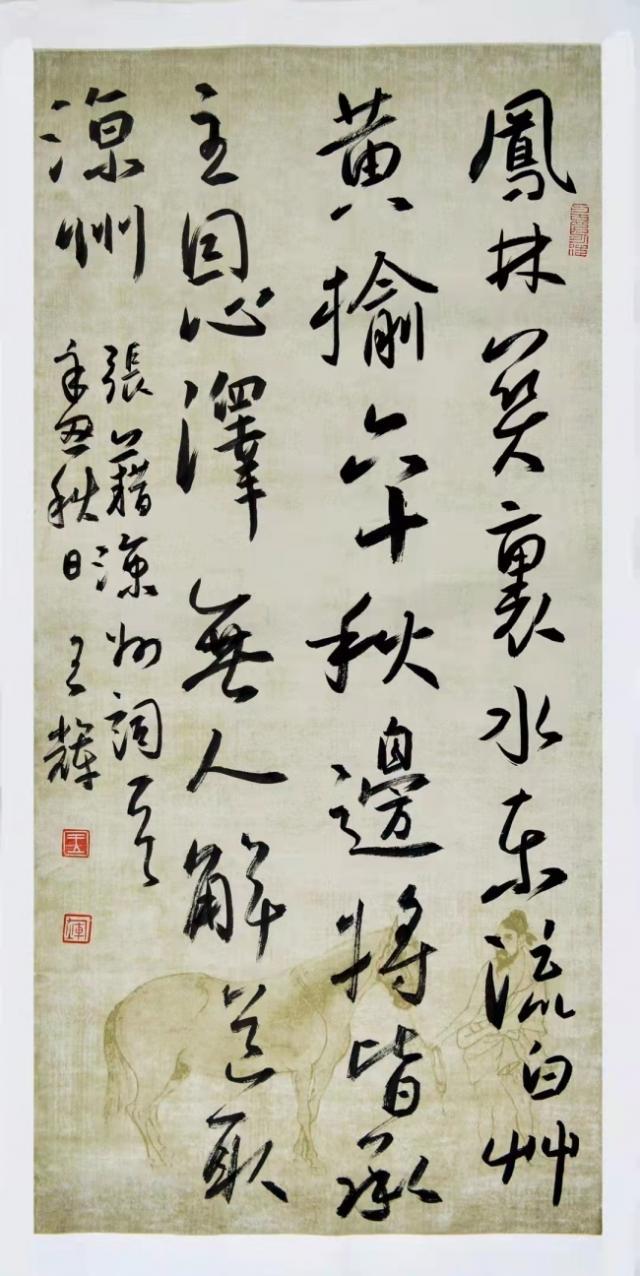 鳳林关裏水东流白艸
黄榆六十秋邊將皆承
主恩澤無人解道取
涼州
張籍涼州詞一首
辛丑秋日 王輝
王